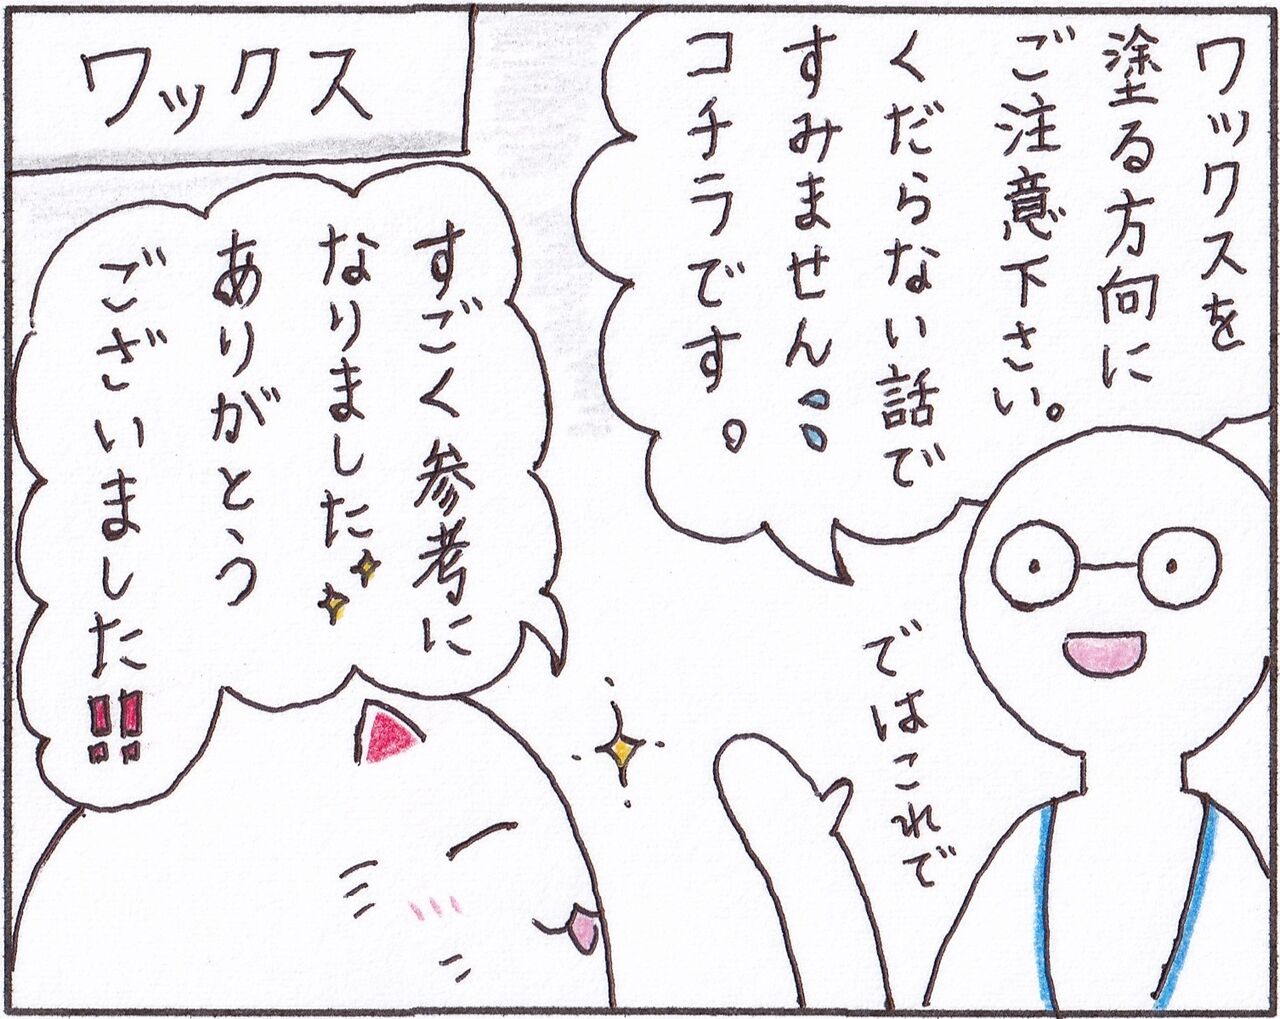 ワックス
ワックスを
塗る方向に
ご注意下さい。
くだらない話で
すみません
コチラです。
ではこれで
すごく参考に
なりました
ありがとう
ございました!!